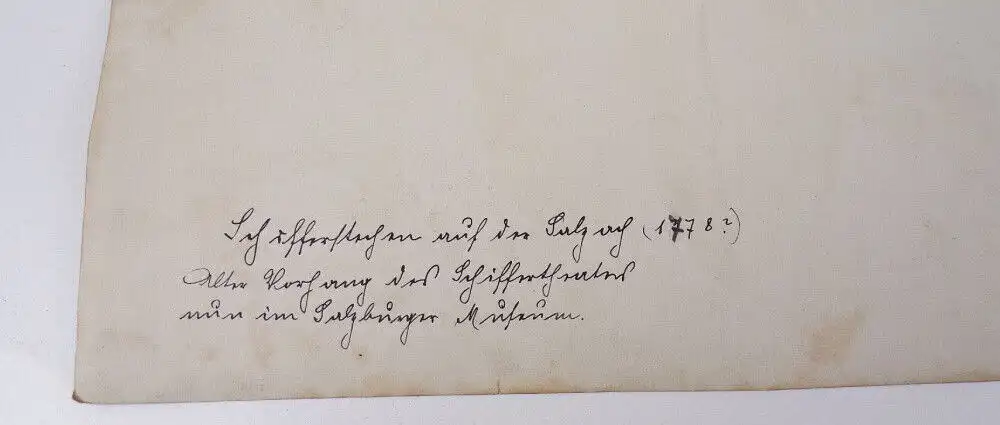 Schifferstechen auf der Salzach (1778?)
Alter Vorhang des Schiffertheaters
nun im Salzburger Museum.